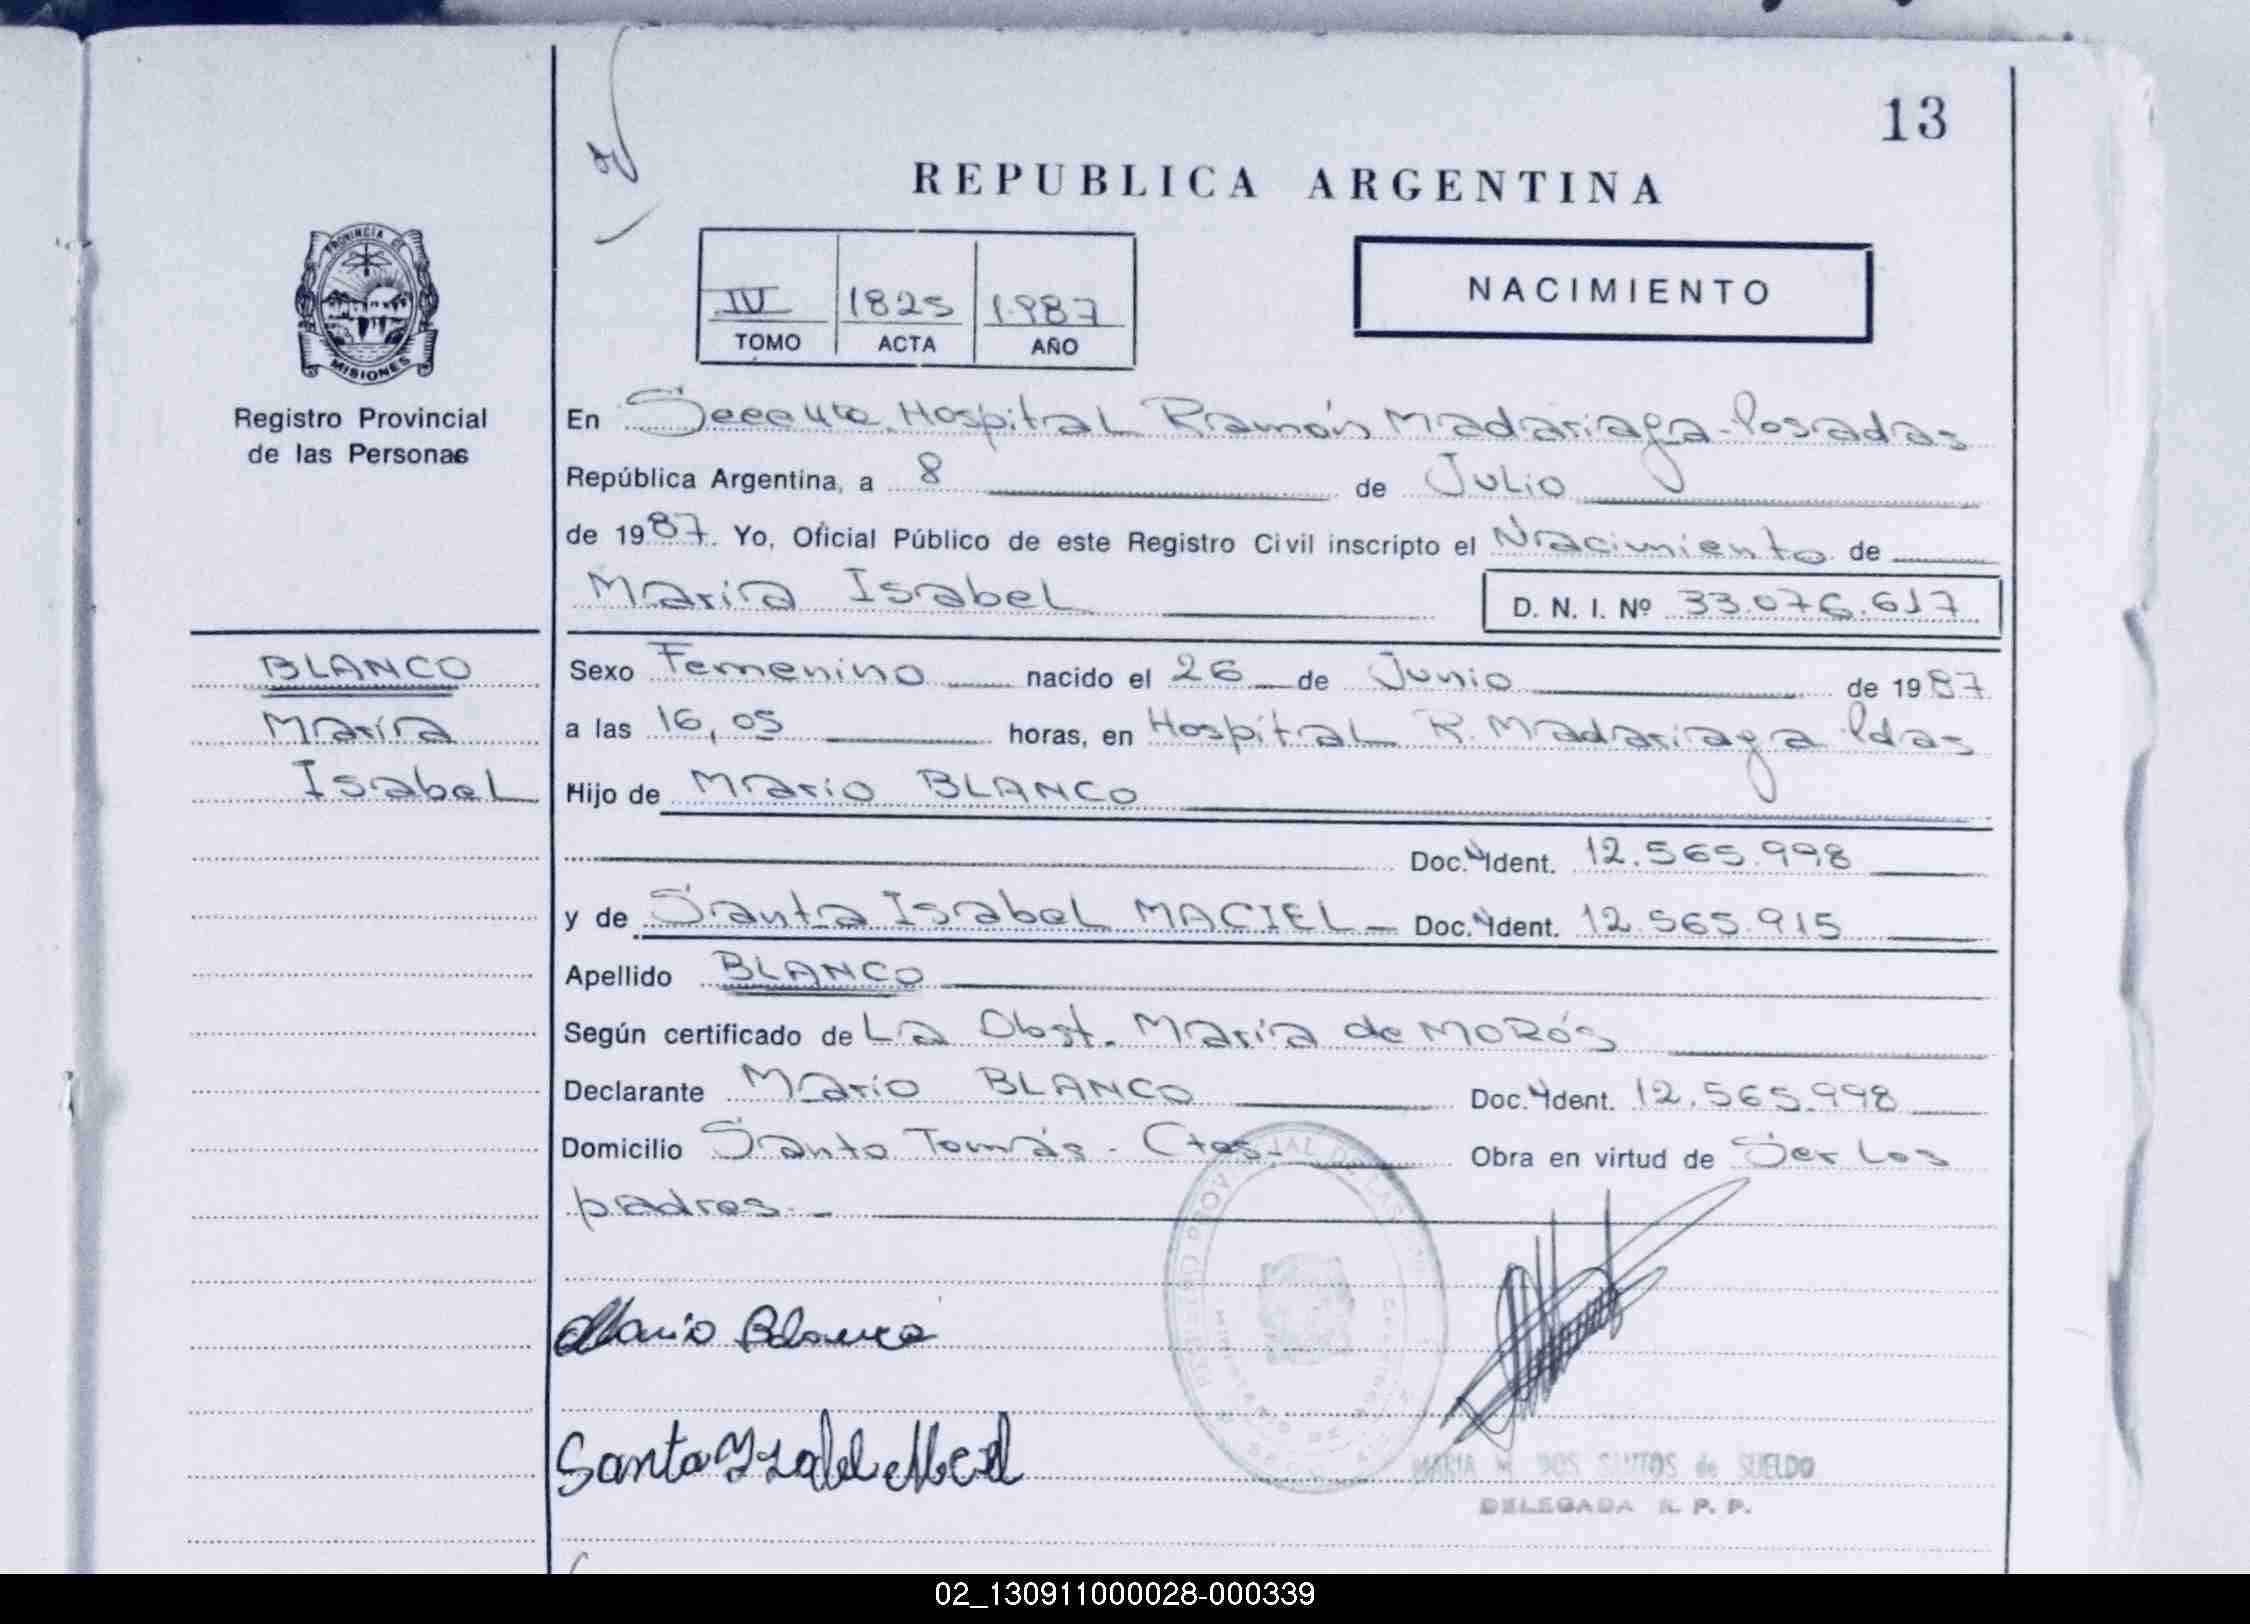 13
REPUBLICA ARGENTINA
PROVINCIA DE
MISIONES
Registro Provincial
de las Personas
IV 1825 1987
TOMO ACTA AÑO
NACIMIENTO
En Hospital Ramón Madariaga - Posadas
República Argentina, a 8 de Julio
de 1987. Yo, Oficial Público de este Registro Civil inscripto el Nacimiento de
María Isabel D. N. I. Nº 33.076.617
BLANCO
María
Isabel
Sexo Femenino nacido el 26 de Junio de 1987
a las 16,05 horas, en Hospital R. Madariaga Pdas
Hijo de Mario BLANCO
Doc. Ident. 12.565.998
y de Santa Isabel MACIEL - Doc. Ident. 12.565.915
Apellido BLANCO
Según certificado de La Obst. María de MORós
Declarante Mario BLANCO Doc. Ident. 12.565.998
Domicilio Santo Tomás - Ctes. Obra en virtud de Ser los
padres. -
Mario Blanco
Santa Isabel
MARIA M. DOS SANTOS de SUELDO
DELEGADA R. P. P.
02_130911000028-000339